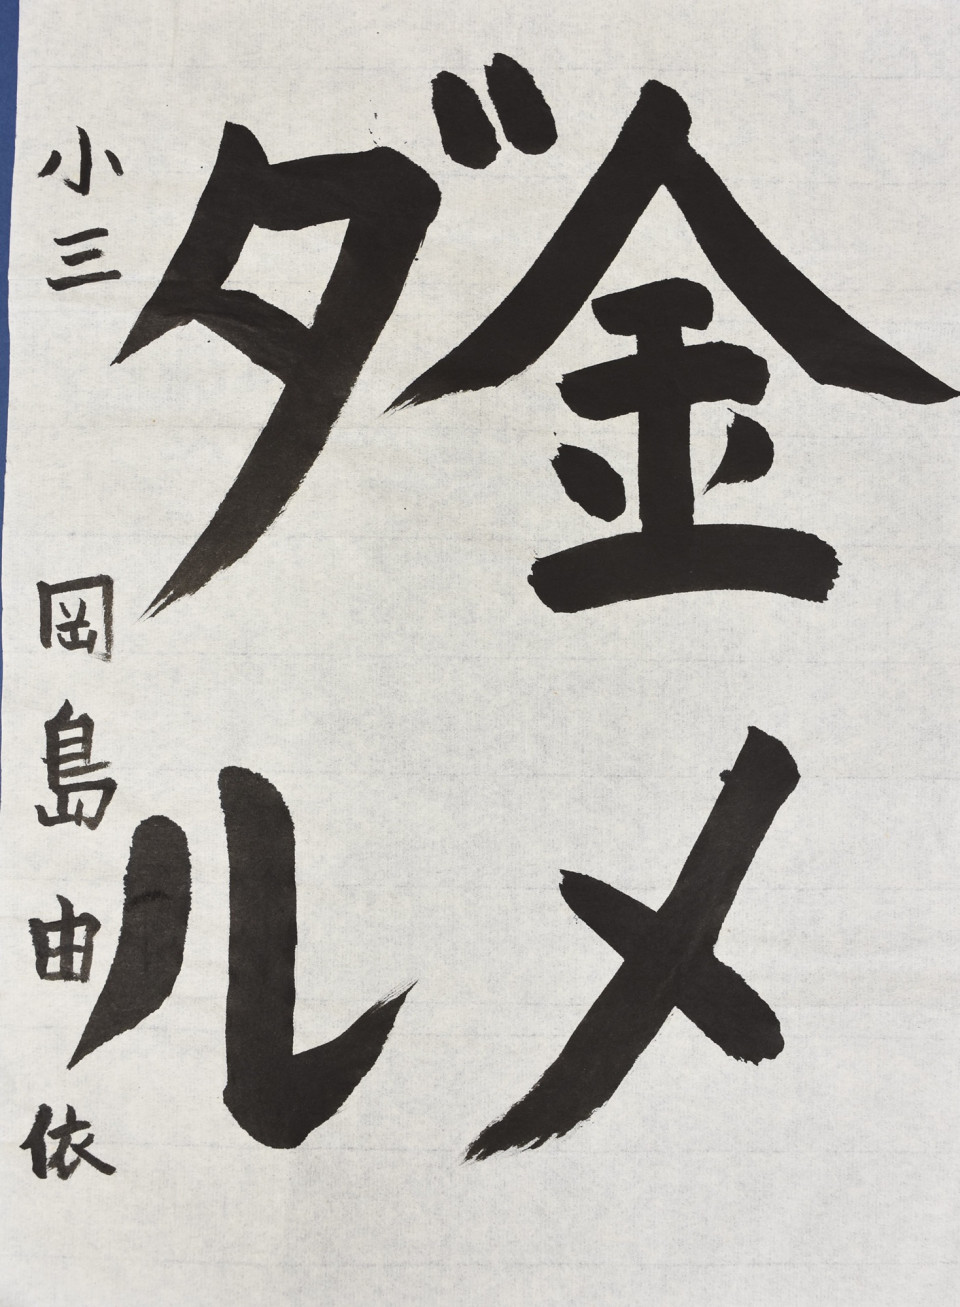 金メ
ダル
小三 岡島由依